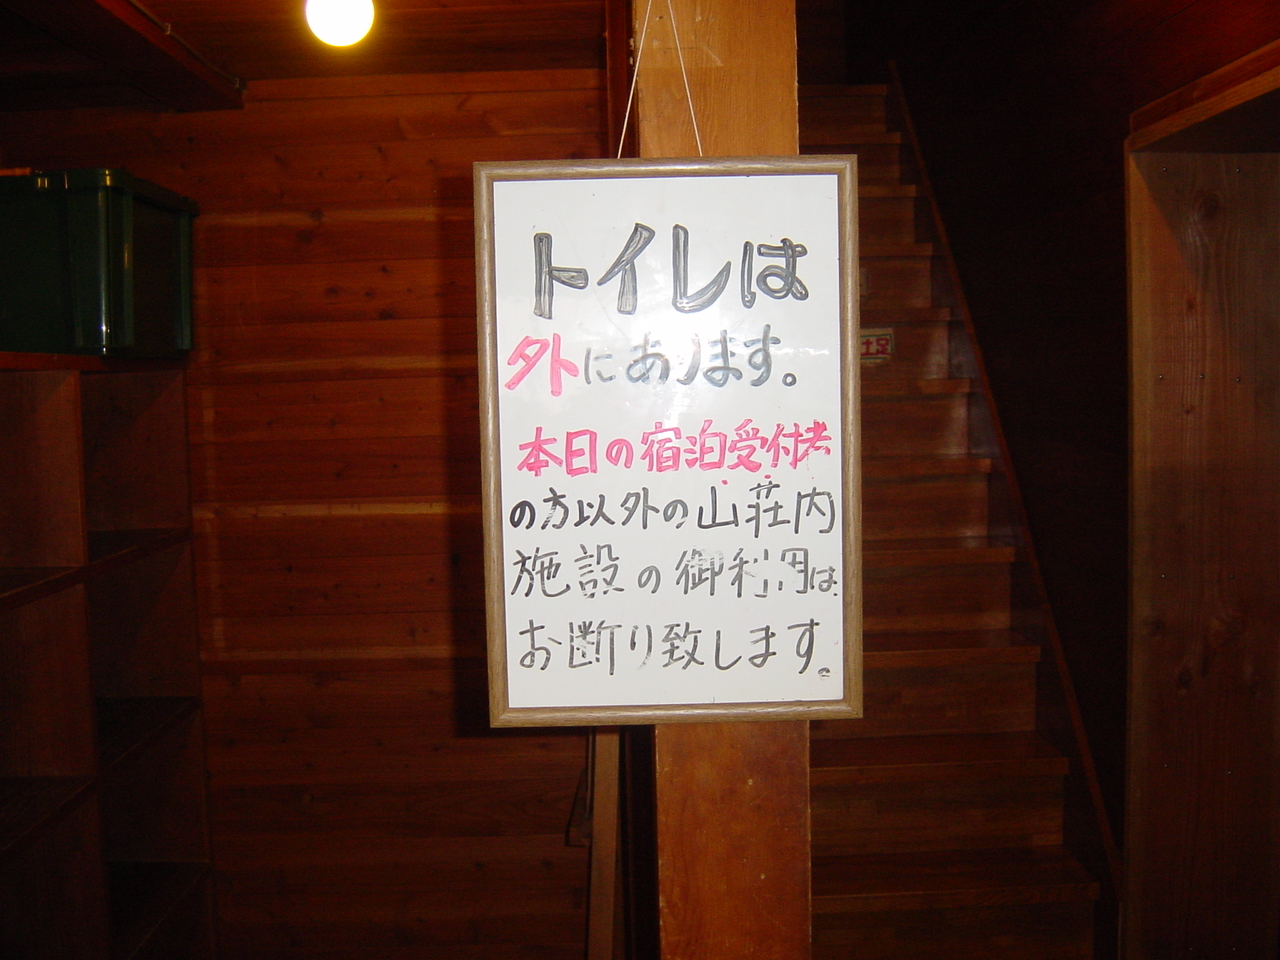 トイレは
外にあります。
本日の宿泊受付者
の方以外の山荘内
施設の御利用は
お断り致します。
土足